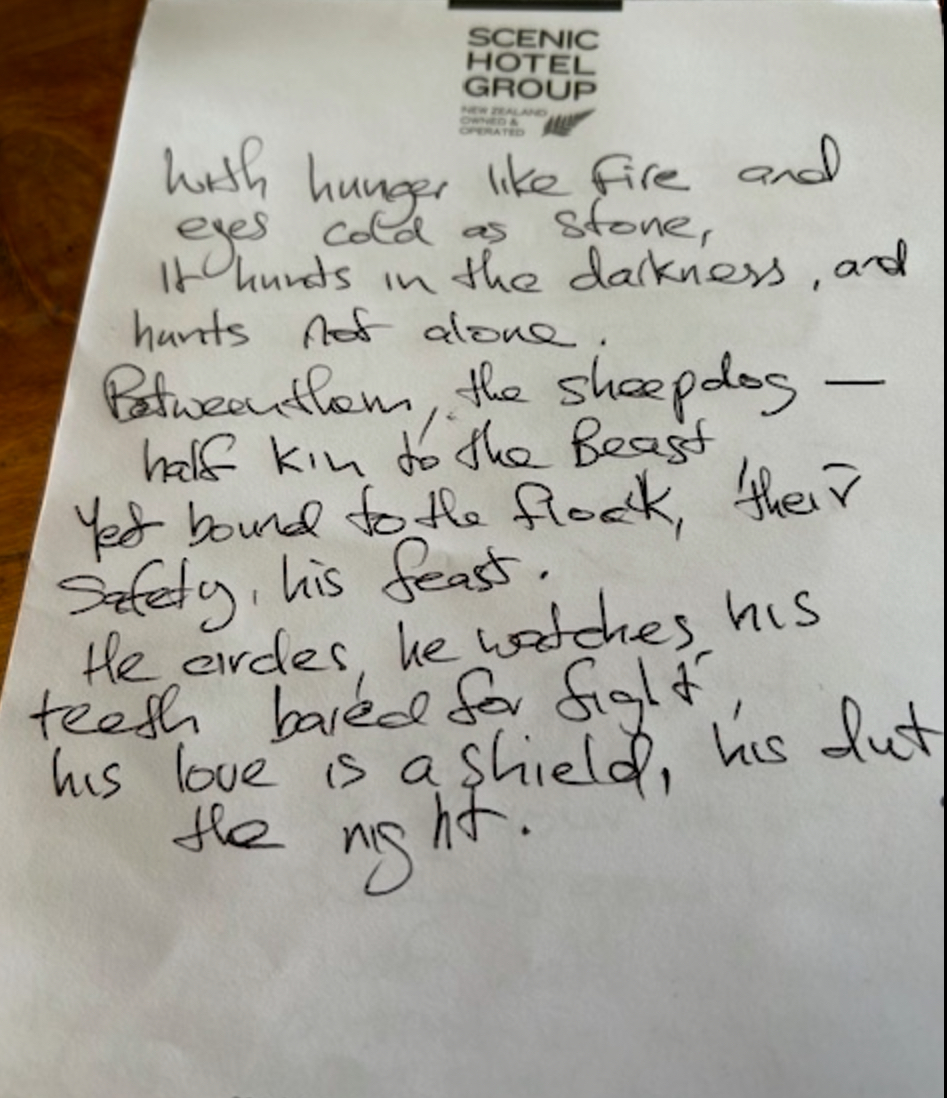 SCENIC
HOTEL
GROUP
NEW ZEALAND
OWNED &
OPERATED
With hunger like fire and
eyes cold as stone,
It hunts in the darkness, and
hunts not alone.
Between them, the sheepdog —
half kin to the Beast
Yet bound to the flock, their
Safety, his feast.
He circles, he watches, his
teeth bared for fight,
his love is a shield, his dut
the night.